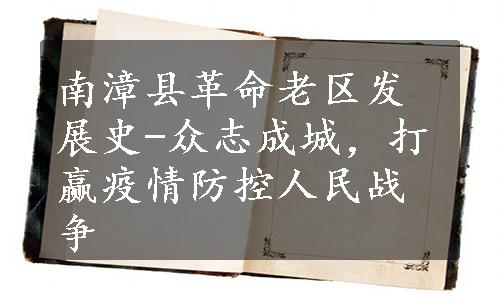 南漳县革命老区发
展史-众志成城，打
赢疫情防控人民战
争